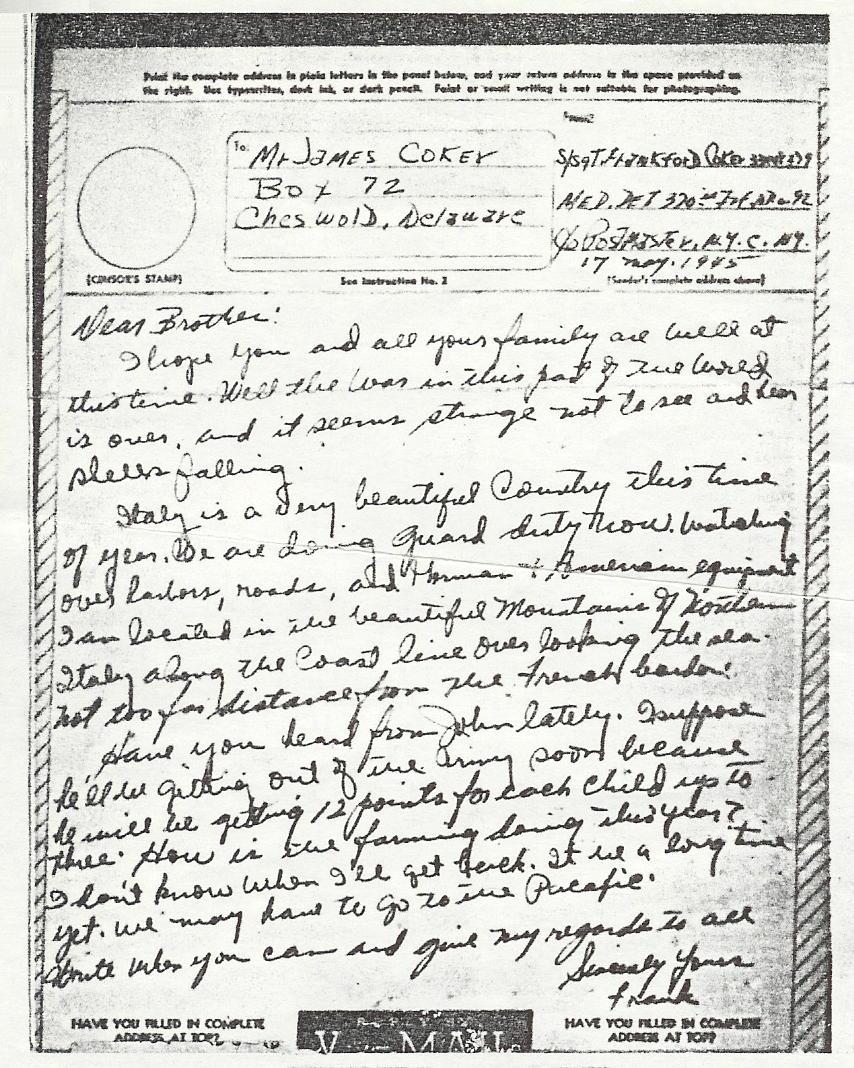 Print the complete address in plain letters in the panel below, and your return address in the space provided on
the right. Use typewriter, dark ink, or dark pencil. Faint or small writing is not suitable for photographing.
To:
Mr James Coker
Box 72
Cheswold, Delaware
S/Sgt. Frankford Coker
MED. DET 370th Inf. APO 92
c/o Postmaster, N.Y.C. NY.
17 May. 1945
(CENSOR'S STAMP)
See Instruction No. 2
(Sender's complete address above)
Dear Brother:
I hope you and all your family are well at
this time. Well the war in this part of the world
is over, and it seems strange not to see and hear
shells falling.
Italy is a very beautiful Country this time
of year. We are doing Guard duty now. Watching
over harbors, roads, and German + American equipment
I am located in the beautiful Mountains of Northern
Italy along the Coast line over looking the sea.
not too far distance from the French border.
Have you heard from John lately. I suppose
he'll be getting out of the Army soon because
he will be getting 12 points for each child up to
three. How is the farming doing this year?
I don't know when I'll get back. It be a long time
yet. We may have to go to the Pacafic.
Write when you can and give my regards to all
Sincerely Yours
Frank
HAVE YOU FILLED IN COMPLETE
ADDRESS AT TOP?
V-MAIL
HAVE YOU FILLED IN COMPLETE
ADDRESS AT TOP?